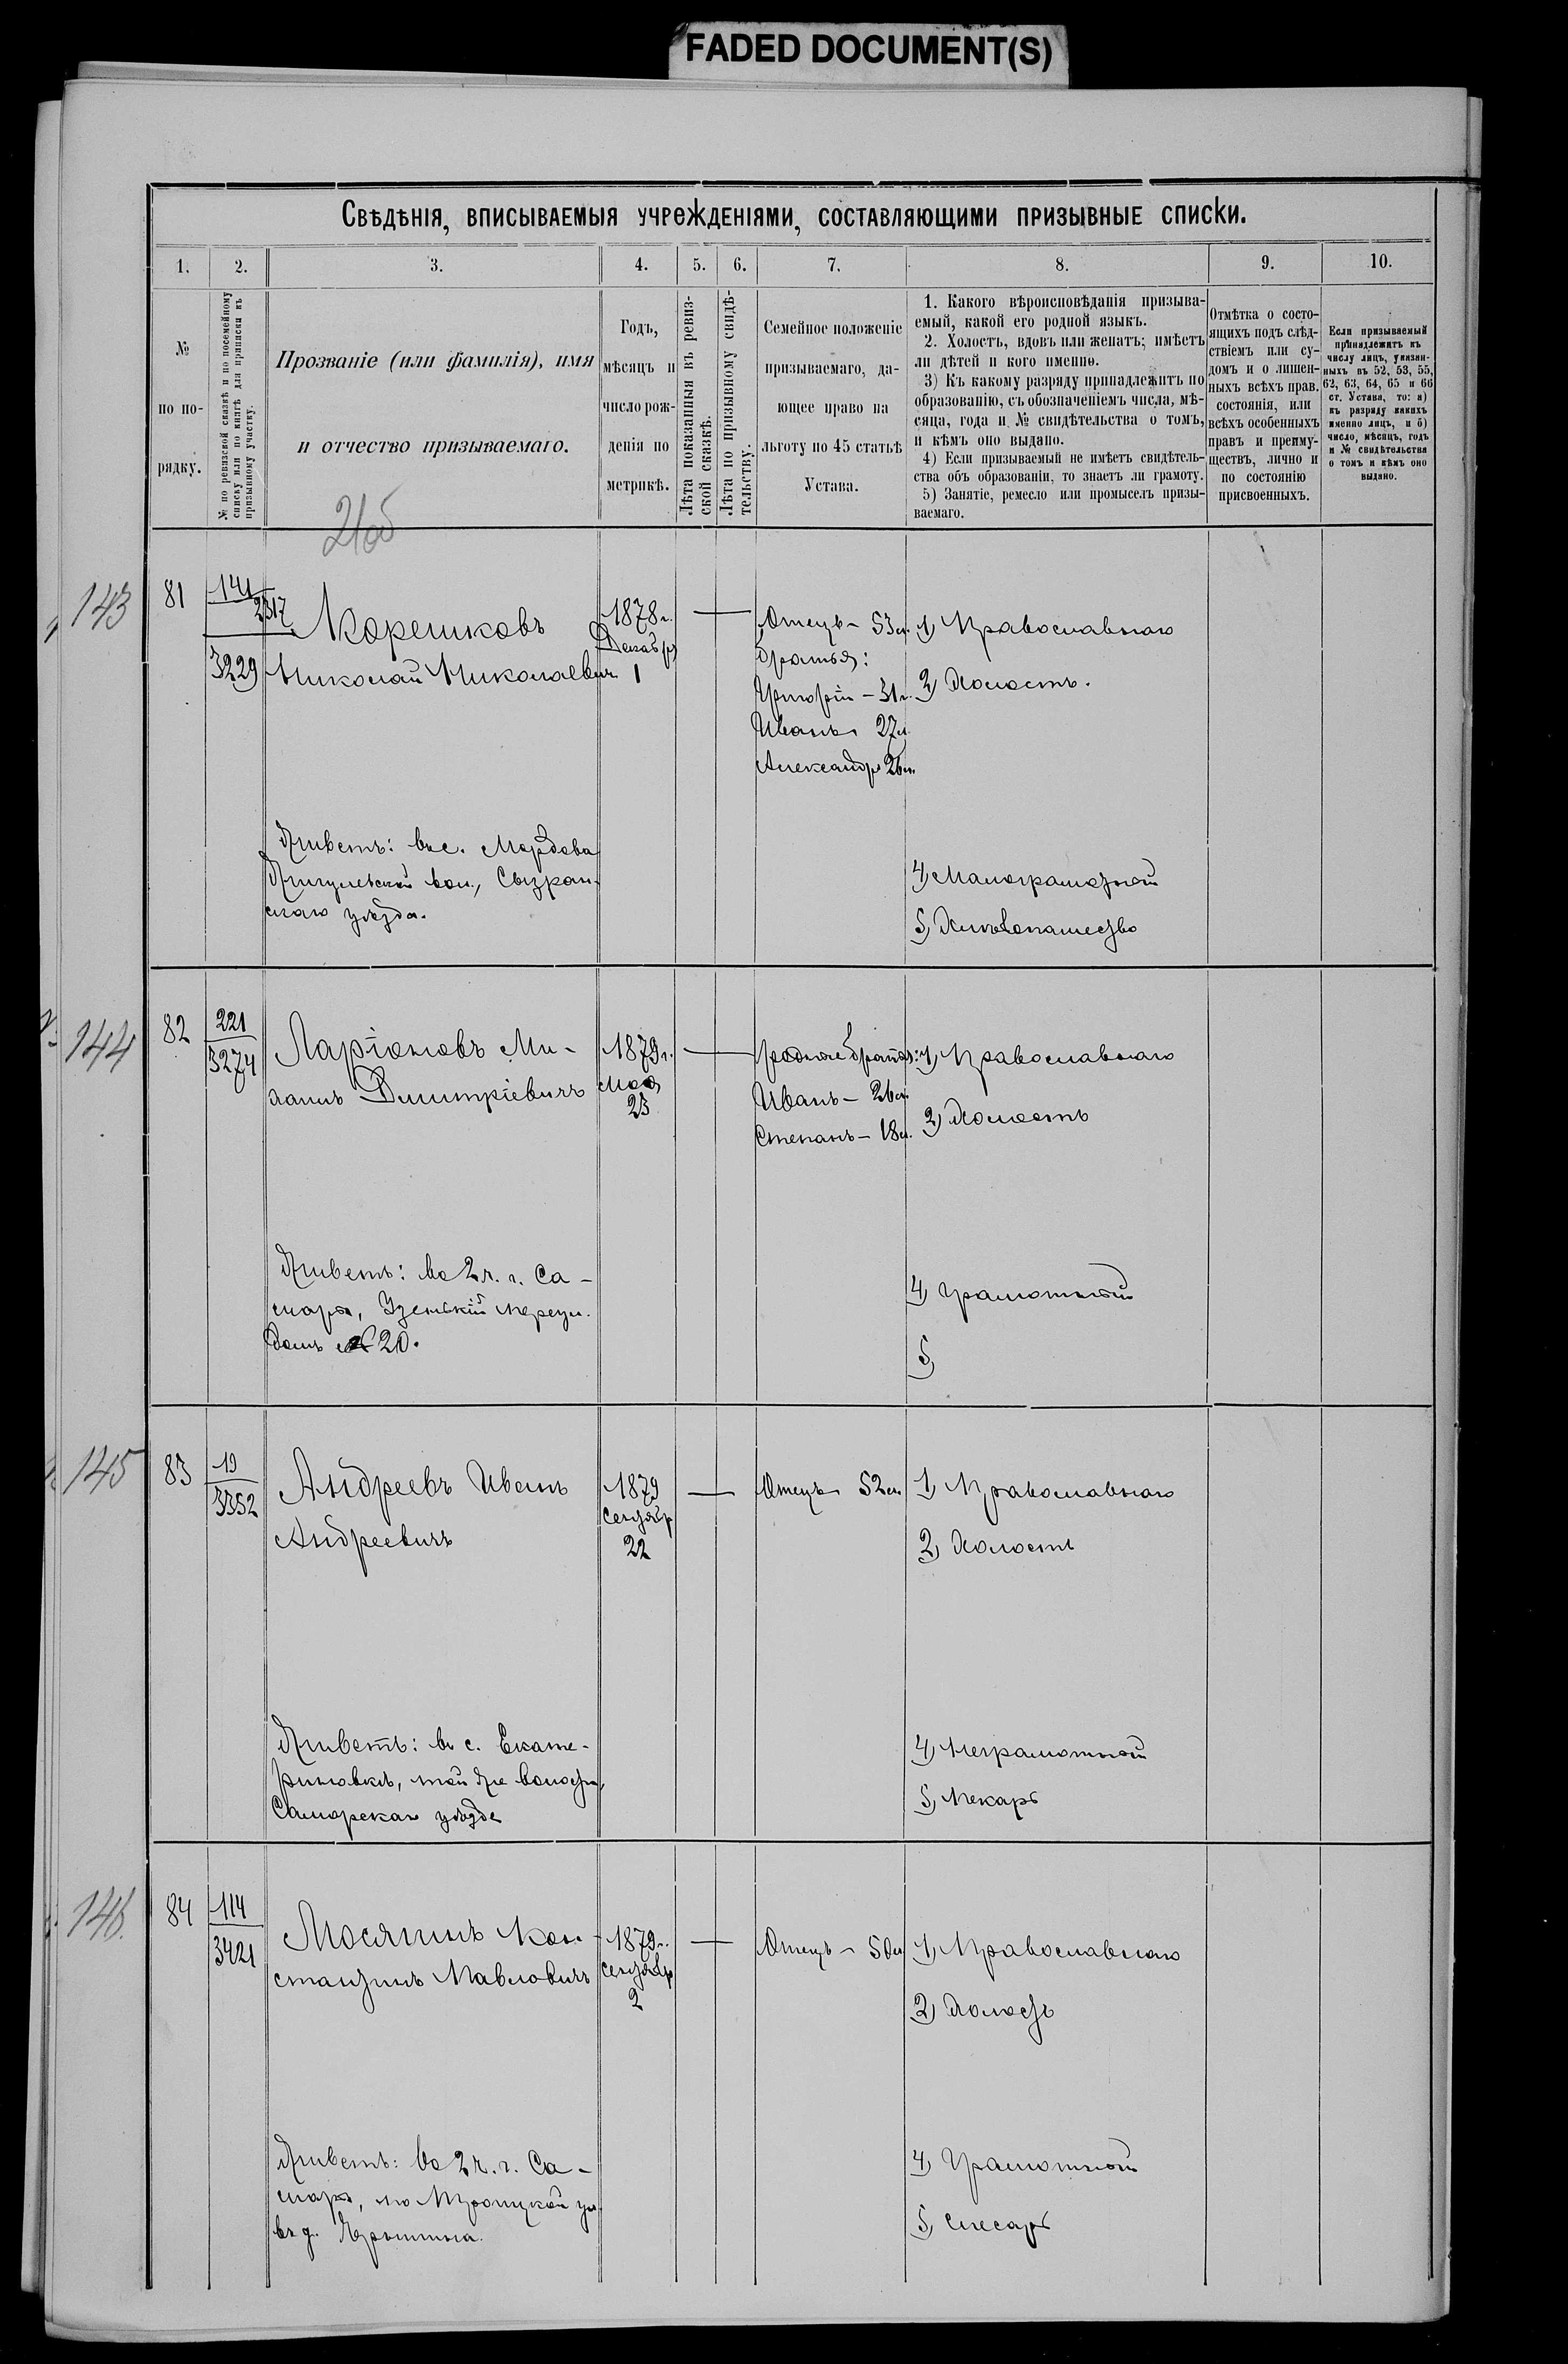 FADED DOCUMENT(S)
Свѣдѣнія, вписываемыя учрежденіями, составляющими призывные списки.
1. 2. 3. 4. 5. 6. 7. 8. 9. 10.
№
по по-
рядку.
№ по ревизской сказкѣ и по посемейному
списку или по книгѣ для приписки къ
призывному участку.
Прозваніе (или фамилія), имя
и отчество призываемаго.
Годъ,
мѣсяцъ и
число рож-
денія по
метрикѣ.
Лѣта показанныя въ ревиз-
ской сказкѣ.
Лѣта по призывному свидѣ-
тельству.
Семейное положеніе
призываемаго, да-
ющее право на
льготу по 45 статьѣ
Устава.
1. Какого вѣроисповѣданія призыва-
емый, какой его родной языкъ.
2. Холостъ, вдовъ или женатъ; имѣетъ
ли дѣтей и кого именно.
3) Къ какому разряду принадлежитъ по
образованію, съ обозначеніемъ числа, мѣ-
сяца, года и № свидѣтельства о томъ,
и кѣмъ оно выдано.
4) Если призываемый не имѣетъ свидѣтель-
ства объ образованіи, то знаетъ ли грамоту.
5) Занятіе, ремесло или промыселъ призы-
ваемаго.
Отмѣтка о состо-
ящихъ подъ слѣд-
ствіемъ или су-
домъ и о лишен-
ныхъ всѣхъ прав.
состоянія, или
всѣхъ особенныхъ
правъ и преиму-
ществъ, лично и
по состоянію
присвоенныхъ.
Если призываемый
принадлежитъ къ
числу лицъ, указан-
ныхъ въ 52, 53, 55,
62, 63, 64, 65 и 66
ст. Устава, то: а)
къ разряду какихъ
именно лицъ, и б)
число, мѣсяцъ, годъ
и № свидѣтельства
о томъ и кѣмъ оно
выдано.
21об
143
81
141
2317
3229
Корешковъ
Николай Николаевич
1878 г.
Декабр
1
Отецъ - 53 л.
братья:
Григорій - 31 г.
Иванъ 27 л.
Александр 26 л.
1) Православнаго
2) Холостъ.
Живетъ: въ с. Мордова
Жигулевской вол., Сызран-
скаго уѣзда.
4) Малограмотной
5) Хлѣбопашество
144
82
221
3274
Ларіоновъ Ми-
хаилъ Димитріевичъ
1879 г.
мая
23
родные братья:
Иванъ - 26 л.
Степанъ - 18 л.
1) Православнаго
2) Холостъ
Живетъ: во 2 ч. г. Са-
марѣ, Узенькій переул.
домъ № 20.
4) Грамотной
5)
145
83
19
3352
Андреевъ Иванъ
Андреевичъ
1879
сентябр
22
Отецъ 52 л.
1) Православнаго
2) Холостъ
Живетъ: въ с. Екате-
риновкѣ, той же волости,
Самарскаго уѣзда
4) Неграмотной
5) Пекарь
146.
84
114
3421
Мосягинъ Кон-
стантинъ Павловичъ
1879 г.
сентябр
2
Отецъ - 50 л.
1) Православнаго
2) Холостъ
Живетъ: во 2 ч. г. Са-
марѣ, по Троицкой ул.
въ д.
4) Грамотной
5) Слесарь